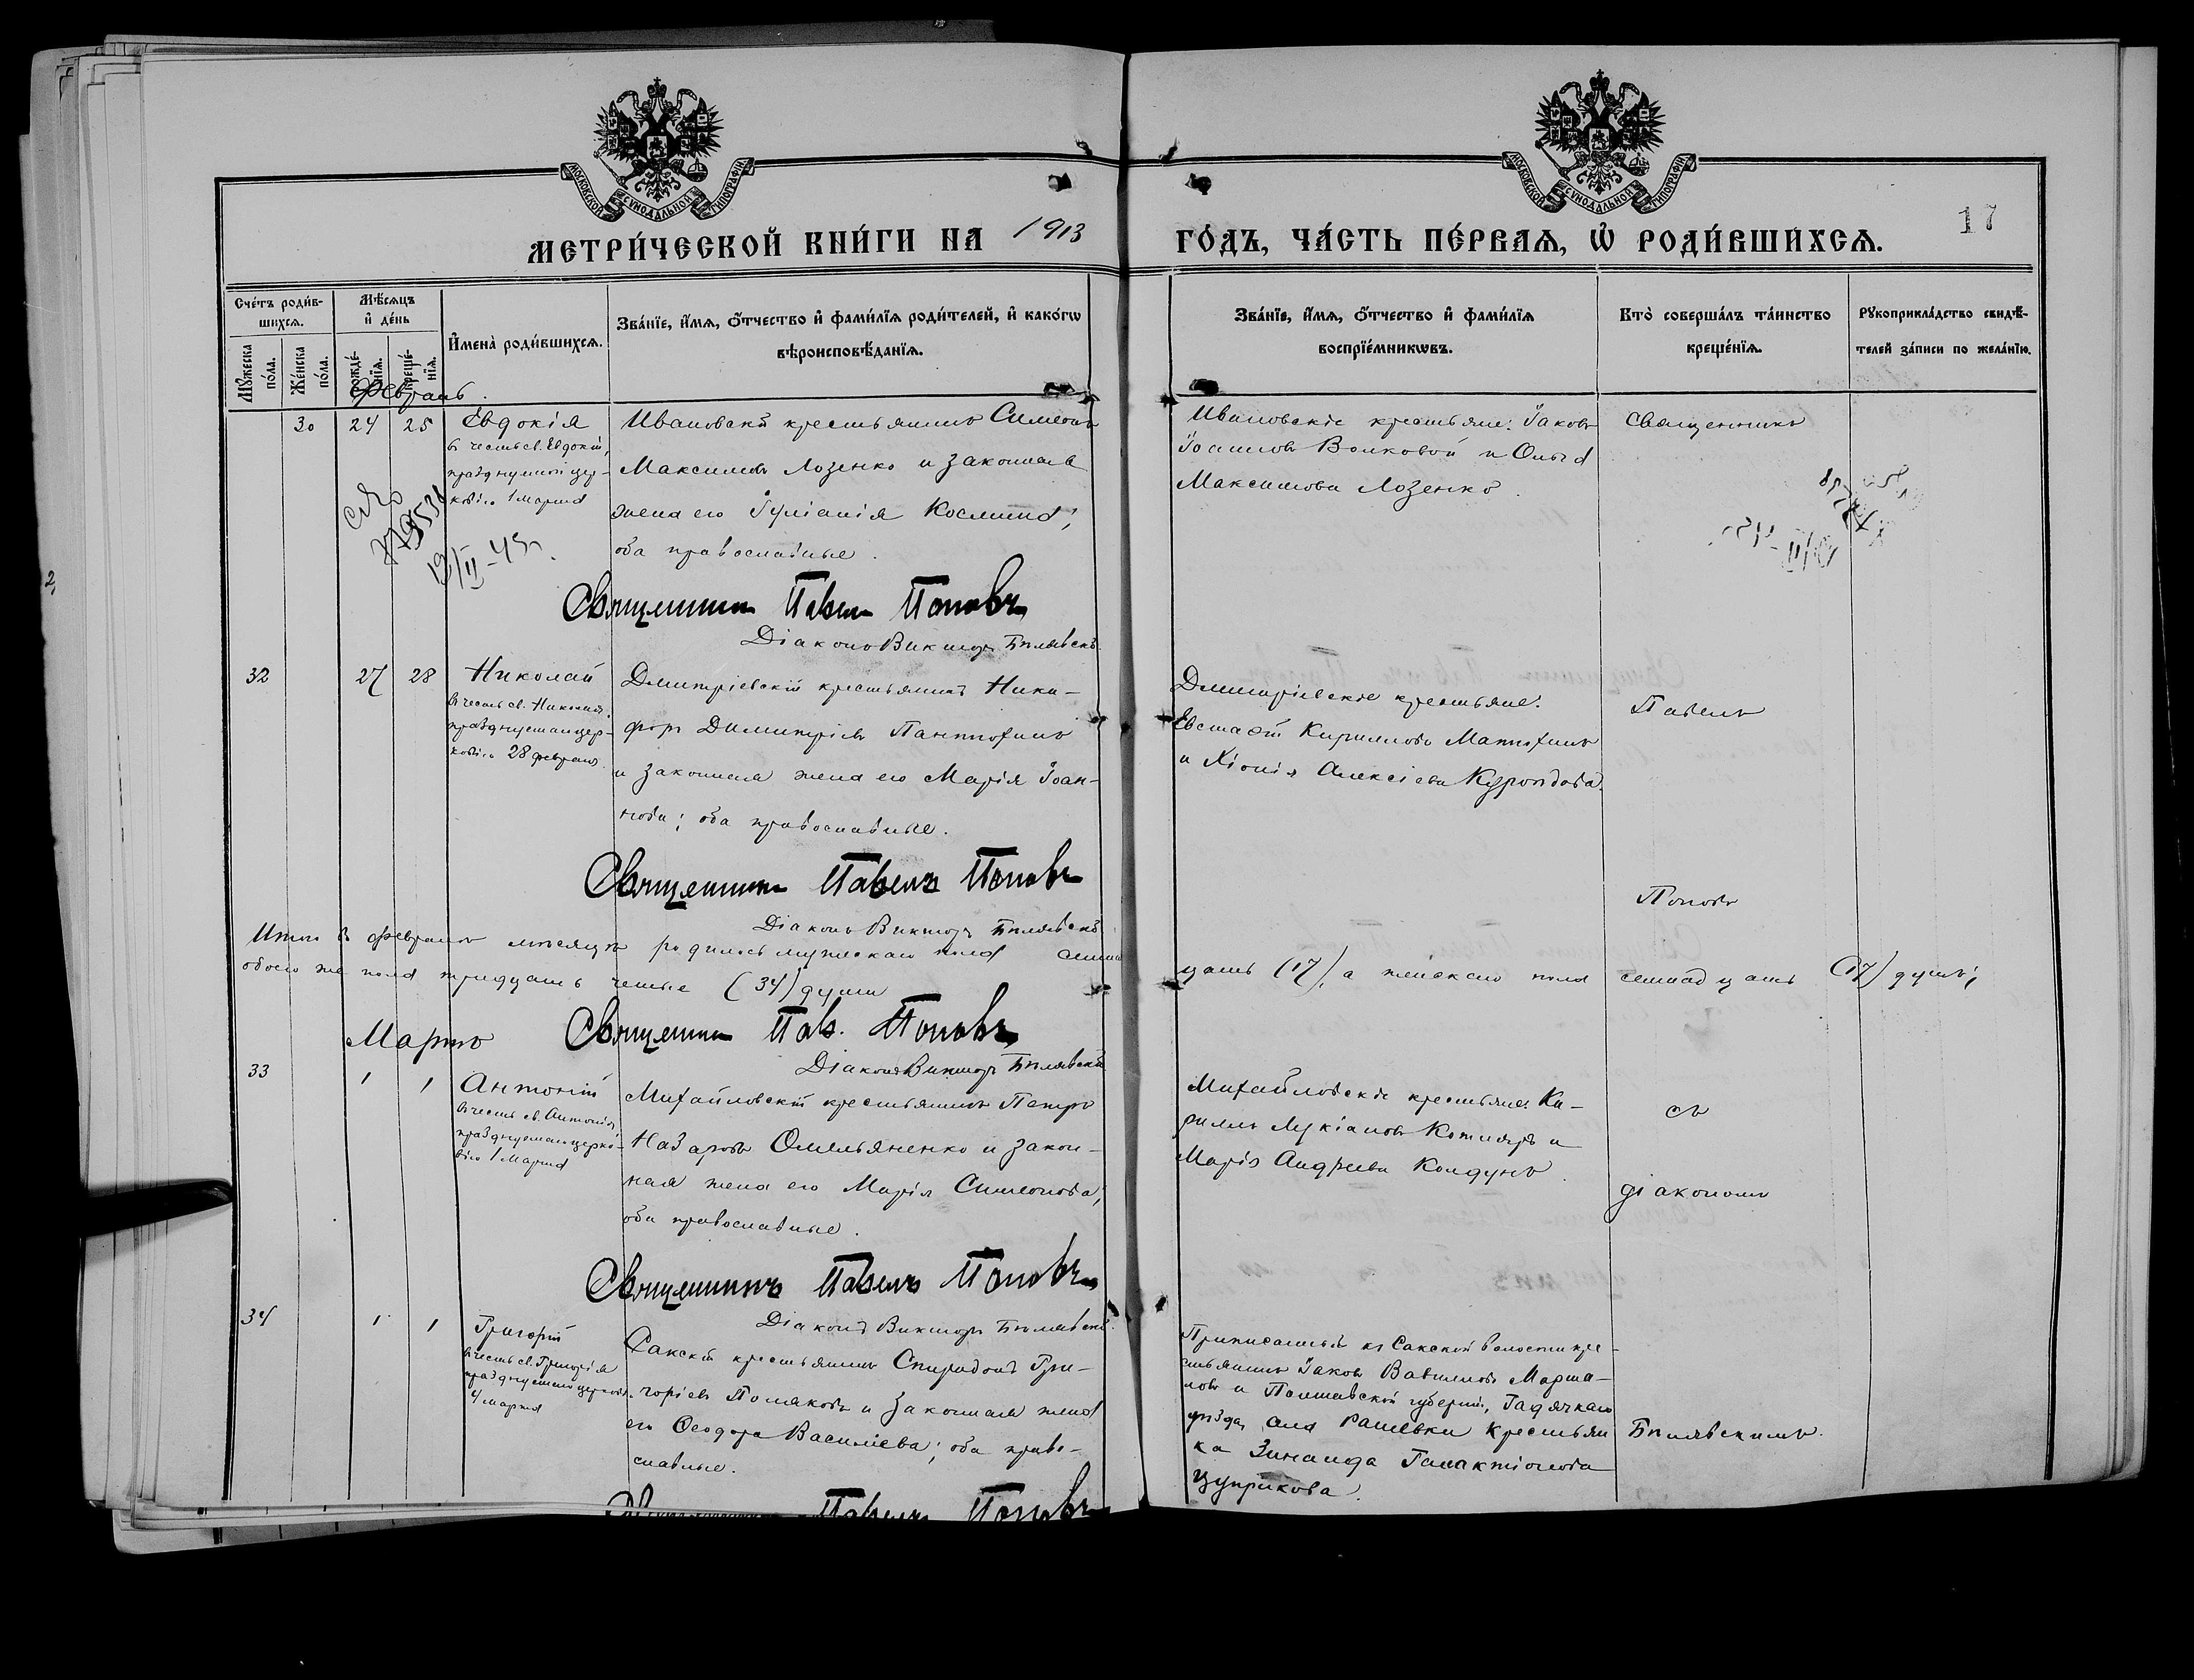 МОСКОВСКОЙ СУНОДАЛЬНОЙ ТИПОГРАФІИ
МОСКОВСКОЙ СУНОДАЛЬНОЙ ТИПОГРАФІИ
МЕТРИ́ЧЕСКОЙ КНИ́ГИ НА 1913 ГО́ДЪ, ЧА́СТЬ ПЕ́РВАЯ, Ѡ҆ РОДИ́ВШИХСЯ.
17
Сче́тъ роди́в-
шихся.
Мѣ́сяцъ
и҆ де́нь
И҆мена̀ роди́вшихся.
Зва́нїе, и҆́мя, ѻ҆́тчество и҆ фами́лїя роди́телей, и҆ како́гѡ
вѣроисповѣ́данїя.
Зва́нїе, и҆́мя, ѻ҆́тчество и҆ фами́лїя
воспрїе́мникѡвъ.
Кто̀ соверша́лъ та́инство
креще́нїя.
Рꙋкоприкла́дство свидѣ́-
телей за́писи по жела́нїю.
Мꙋ́жеска
по́ла.
Же́нска
по́ла.
рожде́-
нїя.
креще́-
нїя.
Февраль.
30 24 25 Евдокія
въ честь св. Евдокіи,
празднуемой цер-
ковію 1 марта
Ивановскій крестьянинъ Симеонъ
Максимовъ Лозенко и законная
жена его Іуліанія Космина;
оба православные.
Ивановскіе крестьяне: Іаковъ
Іоанновъ Волковой и Ольга
Максимова Лозенко.
Священникъ
19/II-43г.
Священникъ Павелъ Поповъ
Діаконъ Викторъ Бѣлявскій
32 27 28 Николай
въ честь св. Николая,
празднуемаго цер-
ковію 28 февраля.
Димитріевскій крестьянинъ Ники-
форъ Димитріевъ Пантюхинъ
и законная жена его Марія Іоан-
нова; оба православные.
Димитріевскіе крестьяне:
Евстафій Кирилловъ Матюхинъ
и Хіонія Алексіева
Павелъ
Священникъ Павелъ Поповъ
Діаконъ Викторъ Бѣлявскій
Поповъ
Итого въ февралѣ мѣсяцѣ родилось мужескаго пола семнад
цать (17), а женскаго пола семнадцать (17) душъ;
обоего же пола тридцать четыре (34) души
Священникъ Пав. Поповъ
Діаконъ Викторъ Бѣлявскій
Мартъ
33 1 1 Антоній
въ честь св. Антонія,
празднуемаго церко-
вію 1 Марта
Михайловскій крестьянинъ Петръ
Назаровъ Омельяненко и закон-
ная жена его Марія Симеонова;
оба православные.
Михайловскіе крестьяне: Ки-
риллъ Лукіановъ Котляръ и
Марія Андреева Колдунъ.
съ
діакономъ
Священникъ Павелъ Поповъ
Діаконъ Викторъ Бѣлявскій
34 1 1 Григорій
въ честь св. Григорія
празднуемаго церков.
4 марта
Сакскій крестьянинъ Спиридонъ Гри-
горіевъ Поляковъ и законная жена
его Ѳеодора Василіева; оба право-
славные.
Приписанный къ Сакской волости кре-
стьянинъ Іаковъ Вавиловъ Марша-
ловъ и Полтавской губерніи, Гадячкаго
уѣзда, села Рашевки крестьян
ка Зинаида Галактіонова
Цуприкова.
Бѣлявскимъ.
Священникъ Павелъ Поповъ